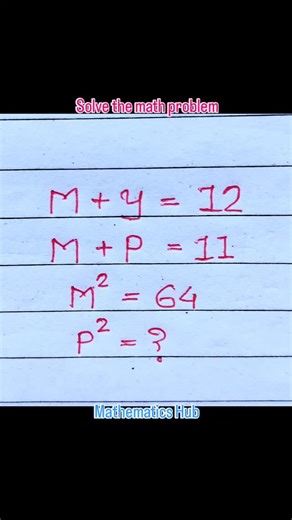 Solve the math problem
M + y = 12
M + P = 11
M² = 64
P² = ?
Mathematics Hub